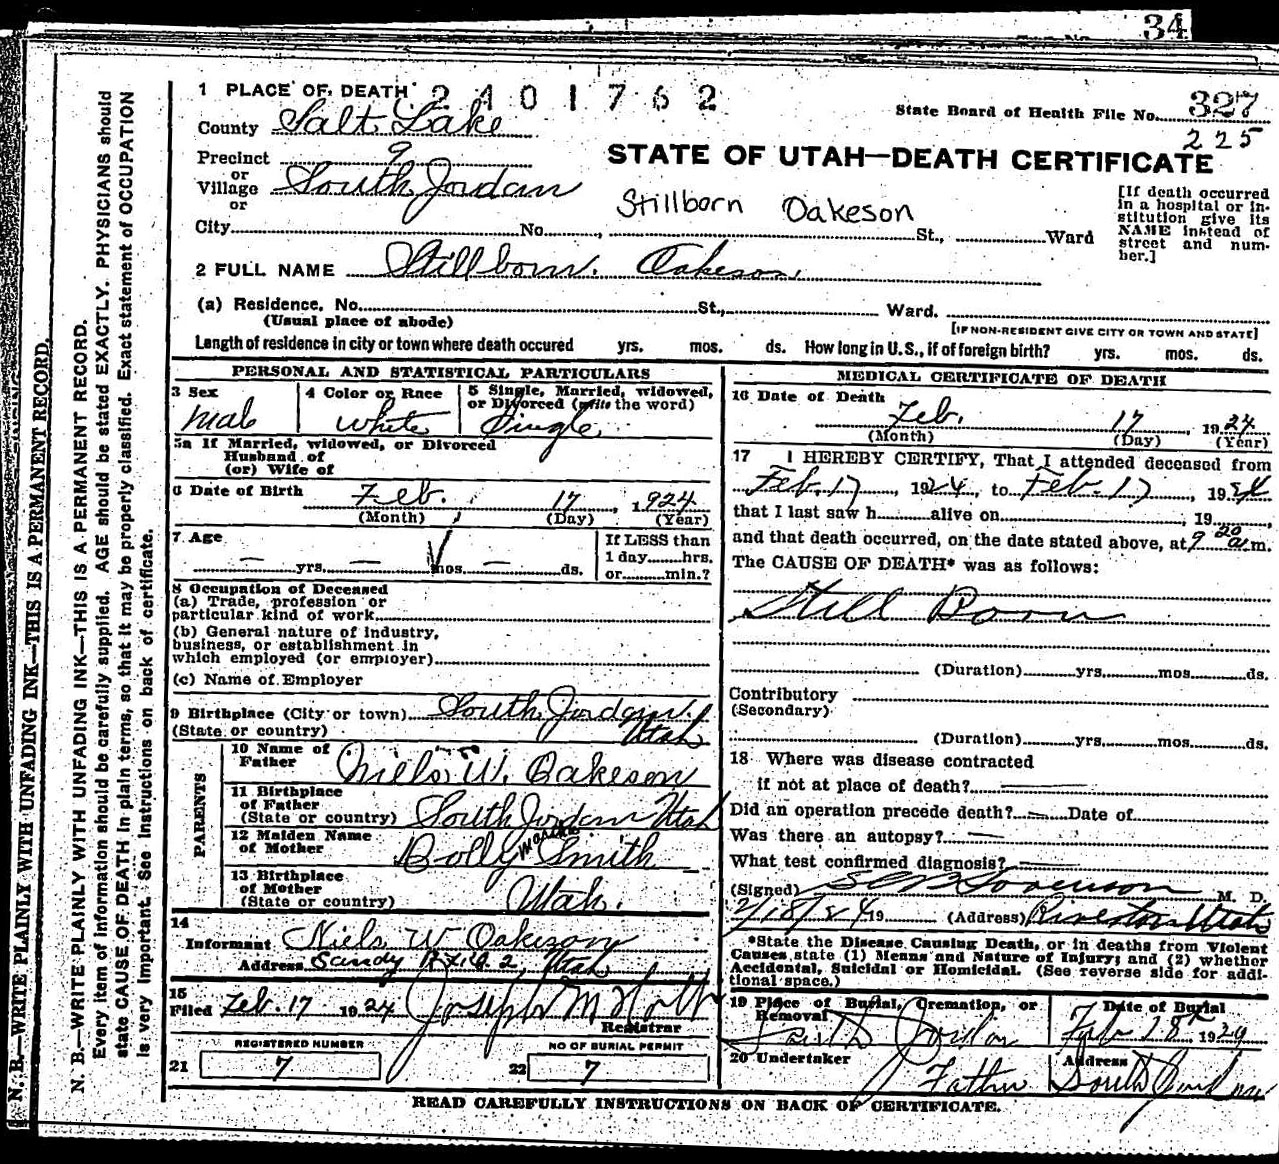 34
1 PLACE OF DEATH 2401762
State Board of Health File No. 327
225
County Salt Lake
STATE OF UTAH—DEATH CERTIFICATE
Precinct 9
or
Village South Jordan
or
Stillborn Oakeson
[If death occurred in a hospital or institution give its NAME instead of street and number.]
City No. , St., Ward
2 FULL NAME Stillborn. Oakeson.
(a) Residence, No. St., Ward.
(Usual place of abode)
[IF NON-RESIDENT GIVE CITY OR TOWN AND STATE]
Length of residence in city or town where death occured yrs. mos. ds. How long in U.S., if of foreign birth? yrs. mos. ds.
PERSONAL AND STATISTICAL PARTICULARS
3 Sex Male
4 Color or Race White
5 Single, Married, widowed, or Divorced (write the word) Single
5a If Married, widowed, or Divorced
Husband of
(or) Wife of
6 Date of Birth Feb. 17, 1924
(Month) (Day) (Year)
7 Age — yrs. — mos. — ds.
If LESS than
1 day hrs.
or min.?
8 Occupation of Deceased
(a) Trade, profession or
particular kind of work
(b) General nature of industry,
business, or establishment in
which employed (or employer)
(c) Name of Employer
9 Birthplace (City or town) South Jordan
(State or country) Utah
PARENTS
10 Name of Father Niels W. Oakeson
11 Birthplace of Father (State or country) South Jordan Utah
12 Maiden Name of Mother Dolly Smith
13 Birthplace of Mother (State or country) Utah.
14
Informant Niels W Oakeson
Address Sandy 2, Utah
15
Filed Feb. 17 1924 Joseph M Holt
Registrar
REGISTERED NUMBER
21 7
NO OF BURIAL PERMIT
22 7
MEDICAL CERTIFICATE OF DEATH
16 Date of Death
Feb. 17 1924
(Month) (Day) (Year)
17 I HEREBY CERTIFY, That I attended deceased from
Feb. 17, 1924, to Feb. 17, 1924
that I last saw h alive on , 19 ,
and that death occurred, on the date stated above, at 9 20 a.m.
The CAUSE OF DEATH* was as follows:
Still Born
(Duration) yrs. mos. ds.
Contributory
(Secondary)
(Duration) yrs. mos. ds.
18 Where was disease contracted
if not at place of death?
Did an operation precede death? Date of
Was there an autopsy?
What test confirmed diagnosis?
(Signed) Sorenson M. D.
2/18/24 19 (Address) Riverton Utah
*State the Disease Causing Death, or in deaths from Violent
Causes state (1) Means and Nature of Injury; and (2) whether
Accidental, Suicidal or Homicidal. (See reverse side for additional space.)
19 Place of Burial, Cremation, or Removal South Jordan
Date of Burial Feb 18 1924
20 Undertaker Father
Address South Jordan
READ CAREFULLY INSTRUCTIONS ON BACK OF CERTIFICATE.
N. B.—WRITE PLAINLY WITH UNFADING INK—THIS IS A PERMANENT RECORD.
N. B.—WRITE PLAINLY WITH UNFADING INK—THIS IS A PERMANENT RECORD.
Every item of information should be carefully supplied. AGE should be stated EXACTLY. PHYSICIANS should
state CAUSE OF DEATH in plain terms, so that it may be properly classified. Exact statement of OCCUPATION
is very important. See instructions on back of certificate.